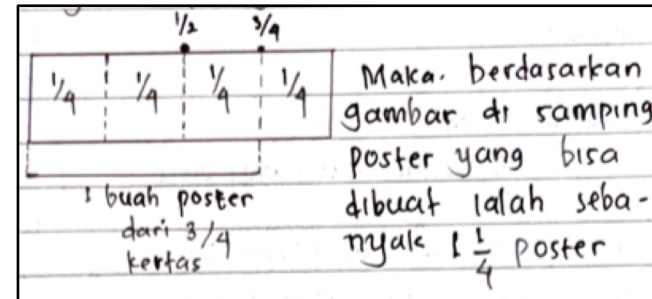 1/2 3/4
1/4 1/4 1/4 1/4
1 buah poster
dari 3/4
kertas
Maka. berdasarkan
gambar di samping
poster yang bisa
dibuat ialah seba-
nyak 1 1/4 poster